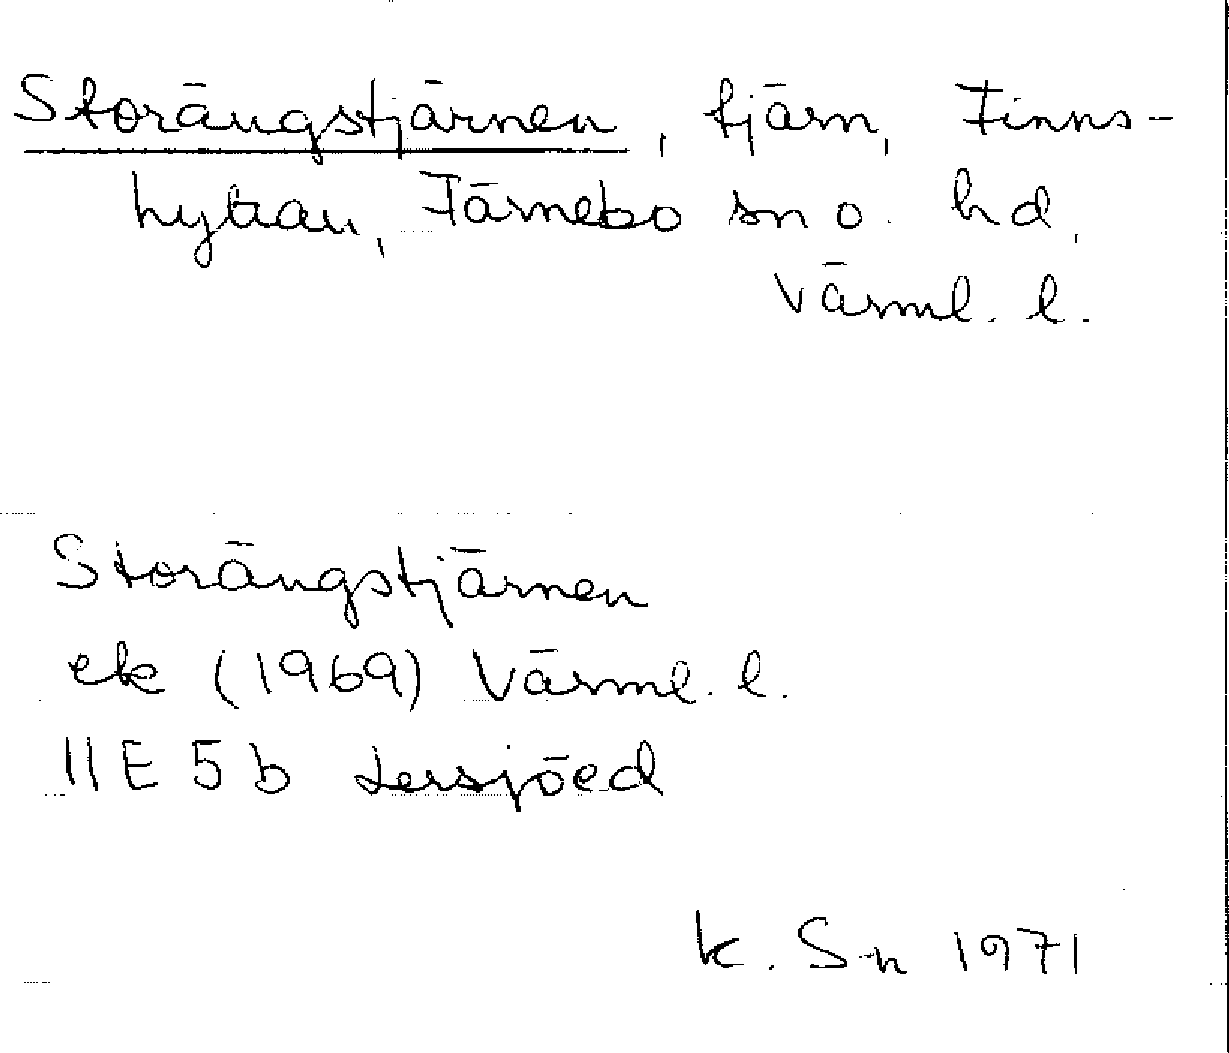 Storängstjärnen, tjärn, Finns-
hyttan, Färnebo sn o. hd,
Värml. l.
Storängstjärnen
ek (1969) Värml. l.
11E 5b Lersjöed
K. S-n 1971